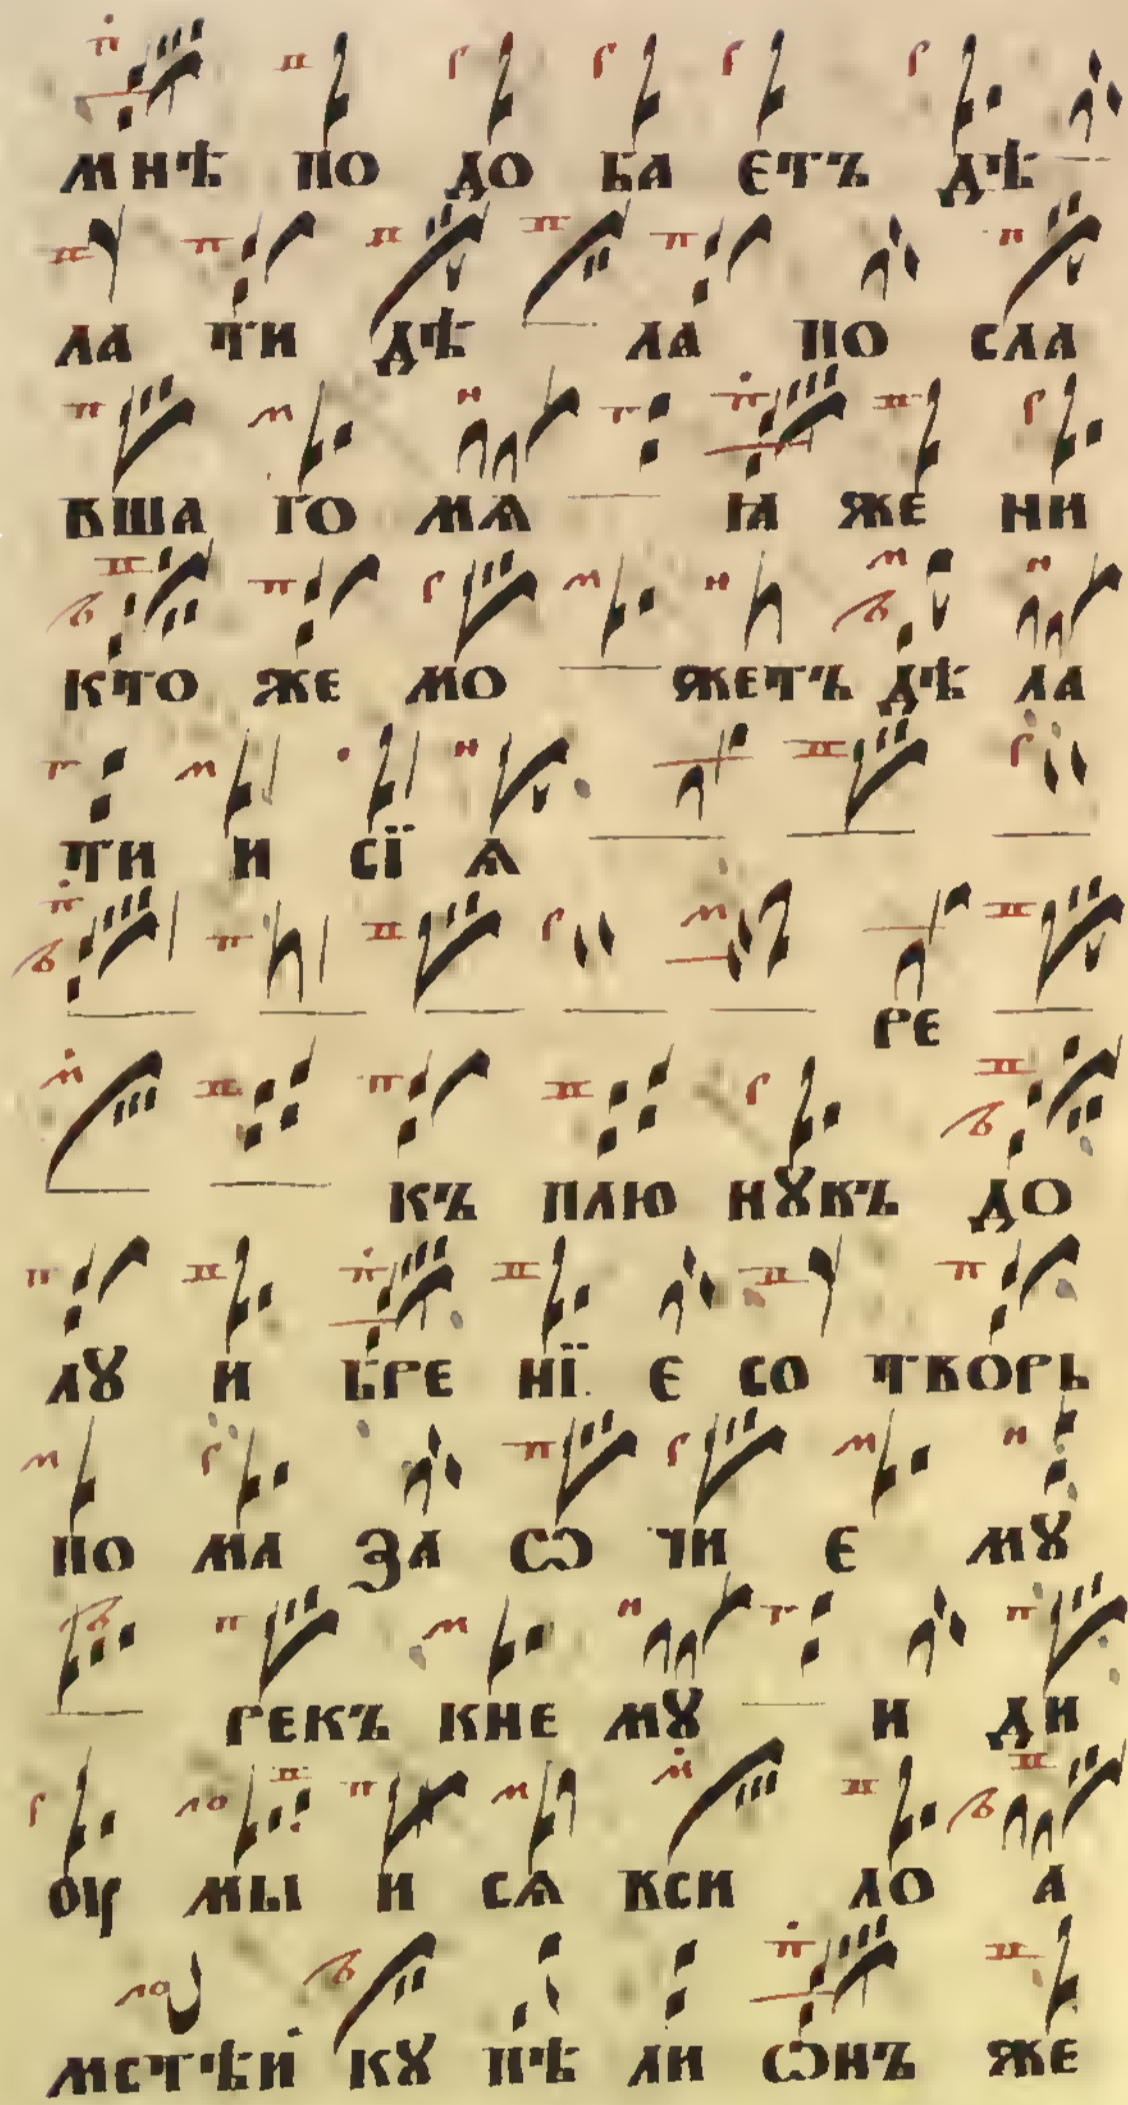 МНѢ ПО ДО БА ЄТЪ ДѢ
ЛА ТИ ДѢ ЛА ПО СЛА
ВША ГО МѦ ꙖЖЕ НИ
КТО ЖЕ МО ЖЕТЪ ДѢ ЛА
ТИ И СЇ Ѧ
РЕ
КЪ ПЛЮ НꙊВЪ ДО
ЛꙊ И БРЕ НЇ Є СО ТВОРЬ
ПО МА ЗА Ѡ ЧИ Є МꙊ
РЕКЪ КНЕ МꙊ И ДИ
ОУ МЫ И СѦ ВСИ ЛО А
МСТѢЙ КꙊ ПѢ ЛИ ѠНЪ ЖЕ